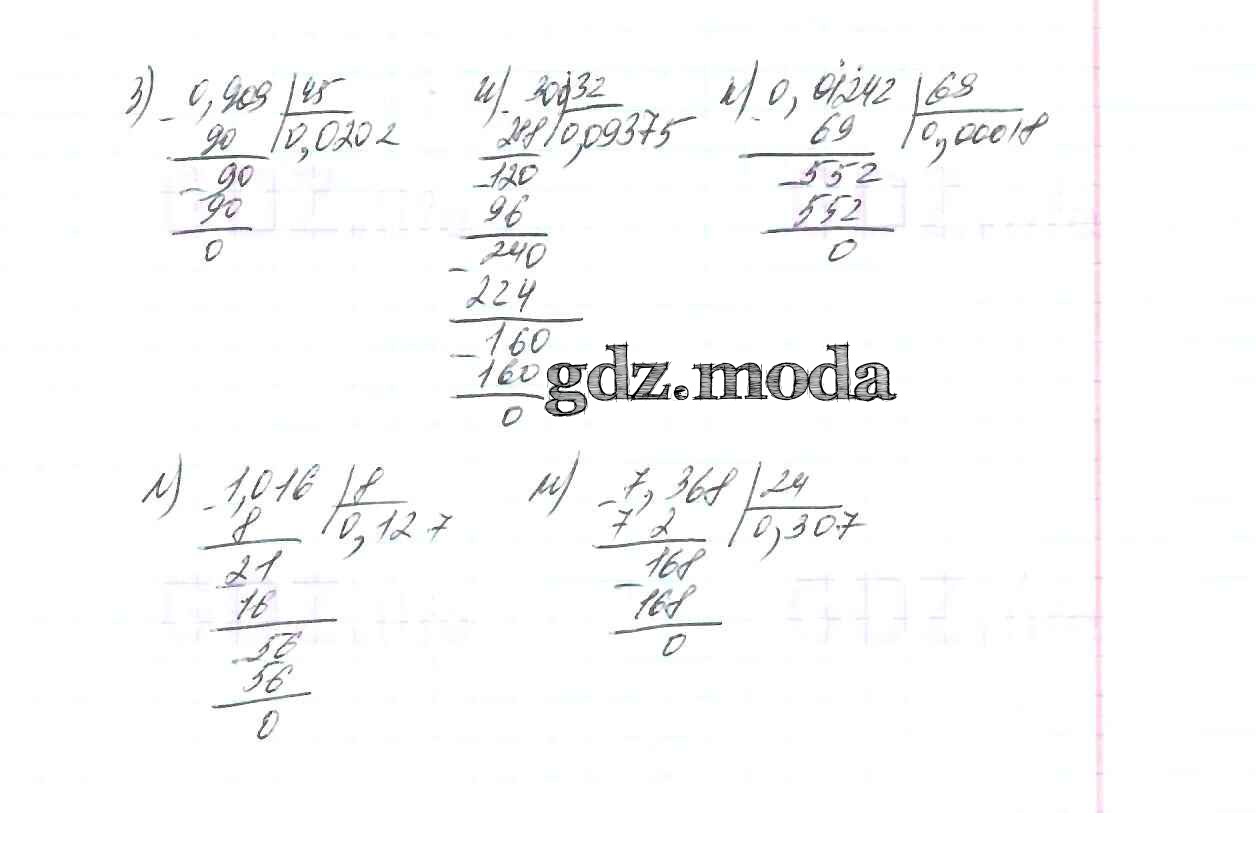 з) 0,909 | 45
90 | 0,0202
90
90
0
и) 300 | 32
288 | 0,09375
120
96
240
224
160
160
0
к) 0,01242 | 69
69 | 0,00018
552
552
0
gdz.moda
л) 1,016 | 8
8 | 0,127
21
16
56
56
0
м) 7,368 | 24
7 2 | 0,307
168
168
0